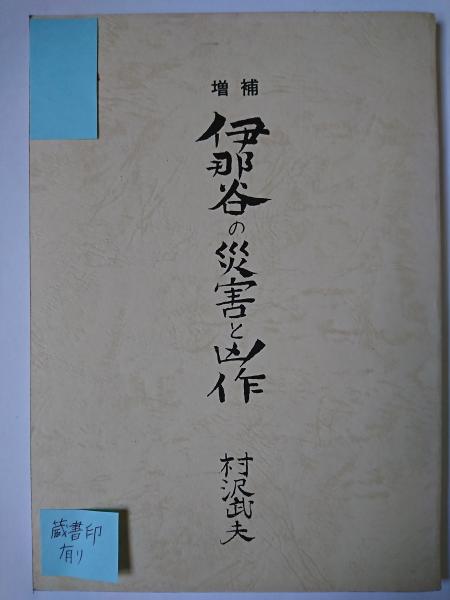 増補
伊那谷の災害と凶作
村沢武夫
蔵書印
有り